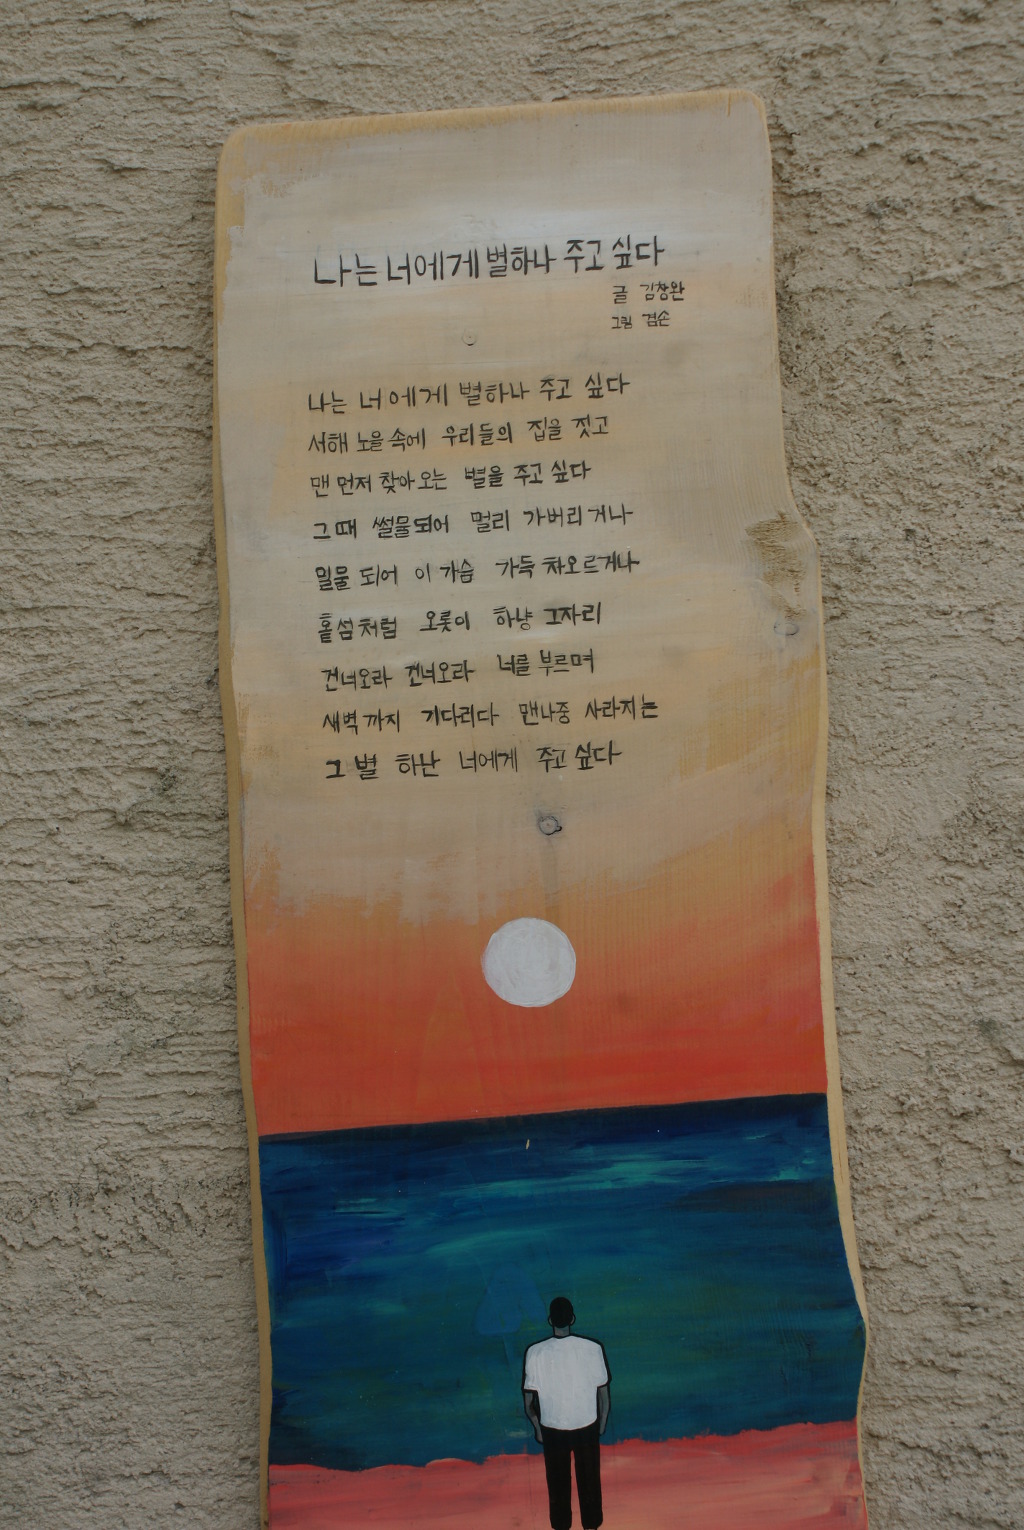 나는 너에게 별하나 주고 싶다
글 김창완
그림 겸손
나는 너에게 별하나 주고 싶다
서해 노을 속에 우리들의 집을 짓고
맨 먼저 찾아오는 별을 주고 싶다
그때 썰물되어 멀리 가버리거나
밀물 되어 이 가슴 가득 차오르거나
홀섬처럼 오롯이 하냥 그자리
건너오라 건너오라 너를 부르며
새벽까지 기다리다 맨나중 사라지는
그 별 하난 너에게 주고 싶다